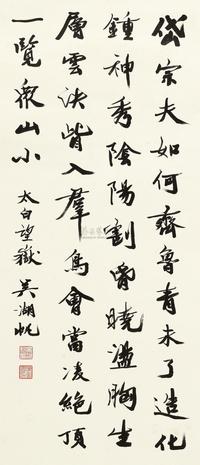 岱宗夫如何齊魯青未了造化
鍾神秀陰陽割昏曉盪胸生
層雲決眥入羣鳥會當凌絕頂
一覽衆山小
太白望嶽 吳湖帆